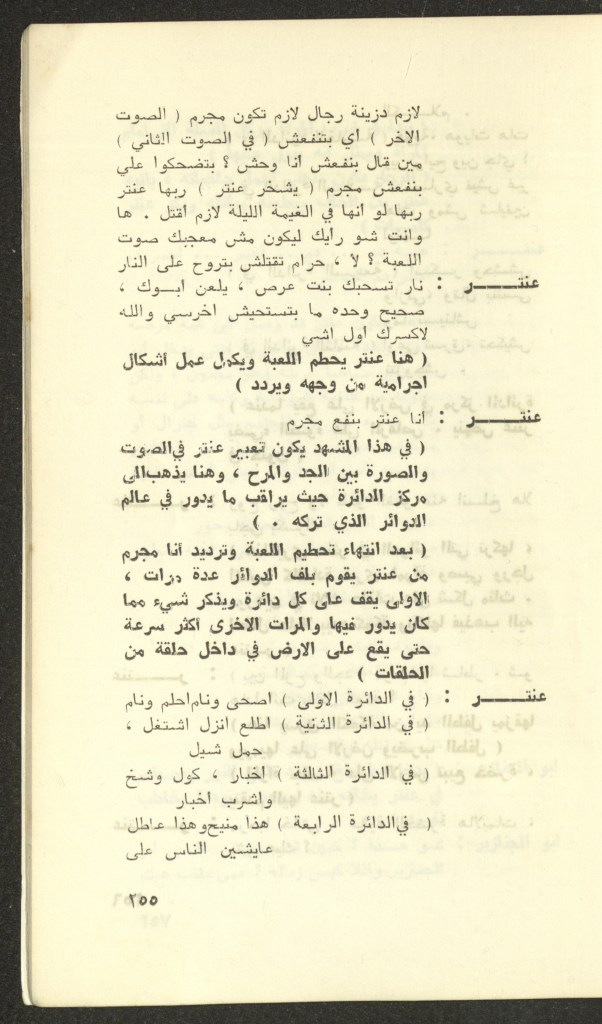 لازم دزينة رجال لازم تكون مجرم ( الصوت
الاخر ) أي بتنفعش ( في الصوت الثاني )
مين قال بنفعش أنا وحش ؟ بتضحكوا علي
بنفعش مجرم ( يشخر عنتر ) ربها عنتر
ربها لو أنها في الغيمة الليلة لازم أقتل . ها
وانت شو رأيك ليكون مش معجبك صوت
اللعبة ؟ لا ، حرام تقتلش بتروح على النار
عنتـــــر : نار تسحبك بنت عرص ، يلعن ابوك ،
صحيح وحده ما بتستحيش اخرسي والله
لاكسرك اول اشي
( هنا عنتر يحطم اللعبة ويكمل عمل أشكال
اجرامية من وجهه ويردد )
عنتـــــر : انا عنتر بنفع مجرم
( في هذا المشهد يكون تعبير عنتر في الصوت
والصورة بين الجد والمرح ، وهنا يذهب الى
مركز الدائرة حيث يراقب ما يدور في عالم
الدوائر الذي تركه . )
( بعد انتهاء تحطيم اللعبة وترديد أنا مجرم
من عنتر يقوم بلف الدوائر عدة مرات ،
الاولى يقف على كل دائرة ويذكر شيء مما
كان يدور فيها والمرات الاخرى أكثر سرعة
حتى يقع على الارض في داخل حلقة من
الحلقات )
عنتـــــر : ( في الدائرة الاولى ) اصحى ونام احلم ونام
( في الدائرة الثنية ) اطلع انزل اشتغل ،
حمل شيل
( في الدائرة الثالثة ) اخبار ، كول وشخ
واشرب اخبار
( في الدائرة الرابعة ) هذا منيح وهذا عاطل
عايشين الناس على
٢٥٥